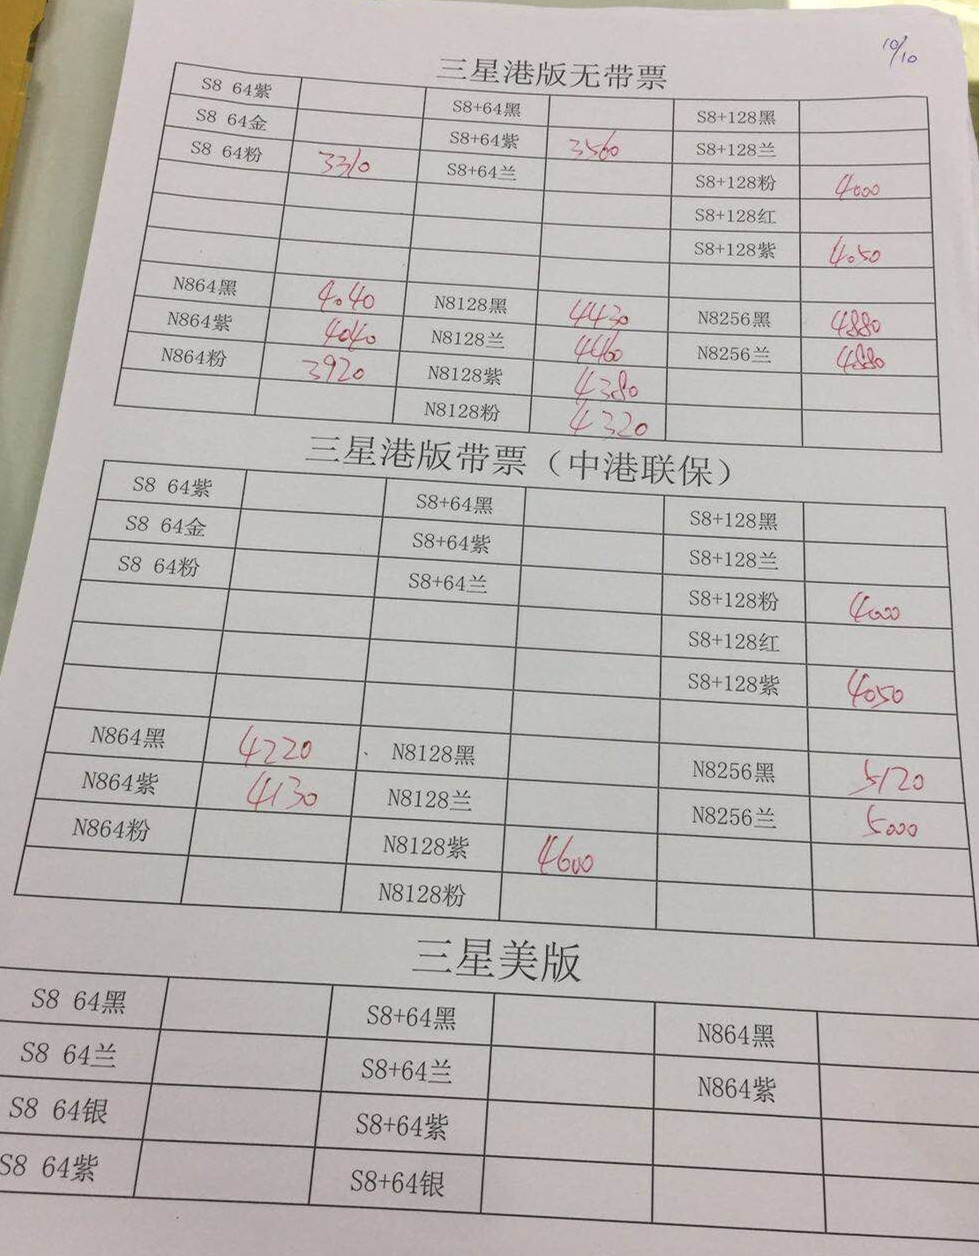 10/10
三星港版无带票
S8 64紫 S8+64黑 S8+128黑
S8 64金 S8+64紫 3560 S8+128兰
S8 64粉 3310 S8+64兰 S8+128粉 4000
S8+128红
S8+128紫 4050
N864黑 4040 N8128黑 4430 N8256黑 4880
N864紫 4040 N8128兰 4460 N8256兰 4880
N864粉 3920 N8128紫 4380
N8128粉 4320
三星港版带票（中港联保）
S8 64紫 S8+64黑 S8+128黑
S8 64金 S8+64紫 S8+128兰
S8 64粉 S8+64兰 S8+128粉 4000
S8+128红
S8+128紫 4050
N864黑 4220 N8128黑 N8256黑 5120
N864紫 4130 N8128兰 N8256兰 5000
N864粉 N8128紫 4600
N8128粉
三星美版
S8 64黑 S8+64黑 N864黑
S8 64兰 S8+64兰 N864紫
S8 64银 S8+64紫
S8 64紫 S8+64银